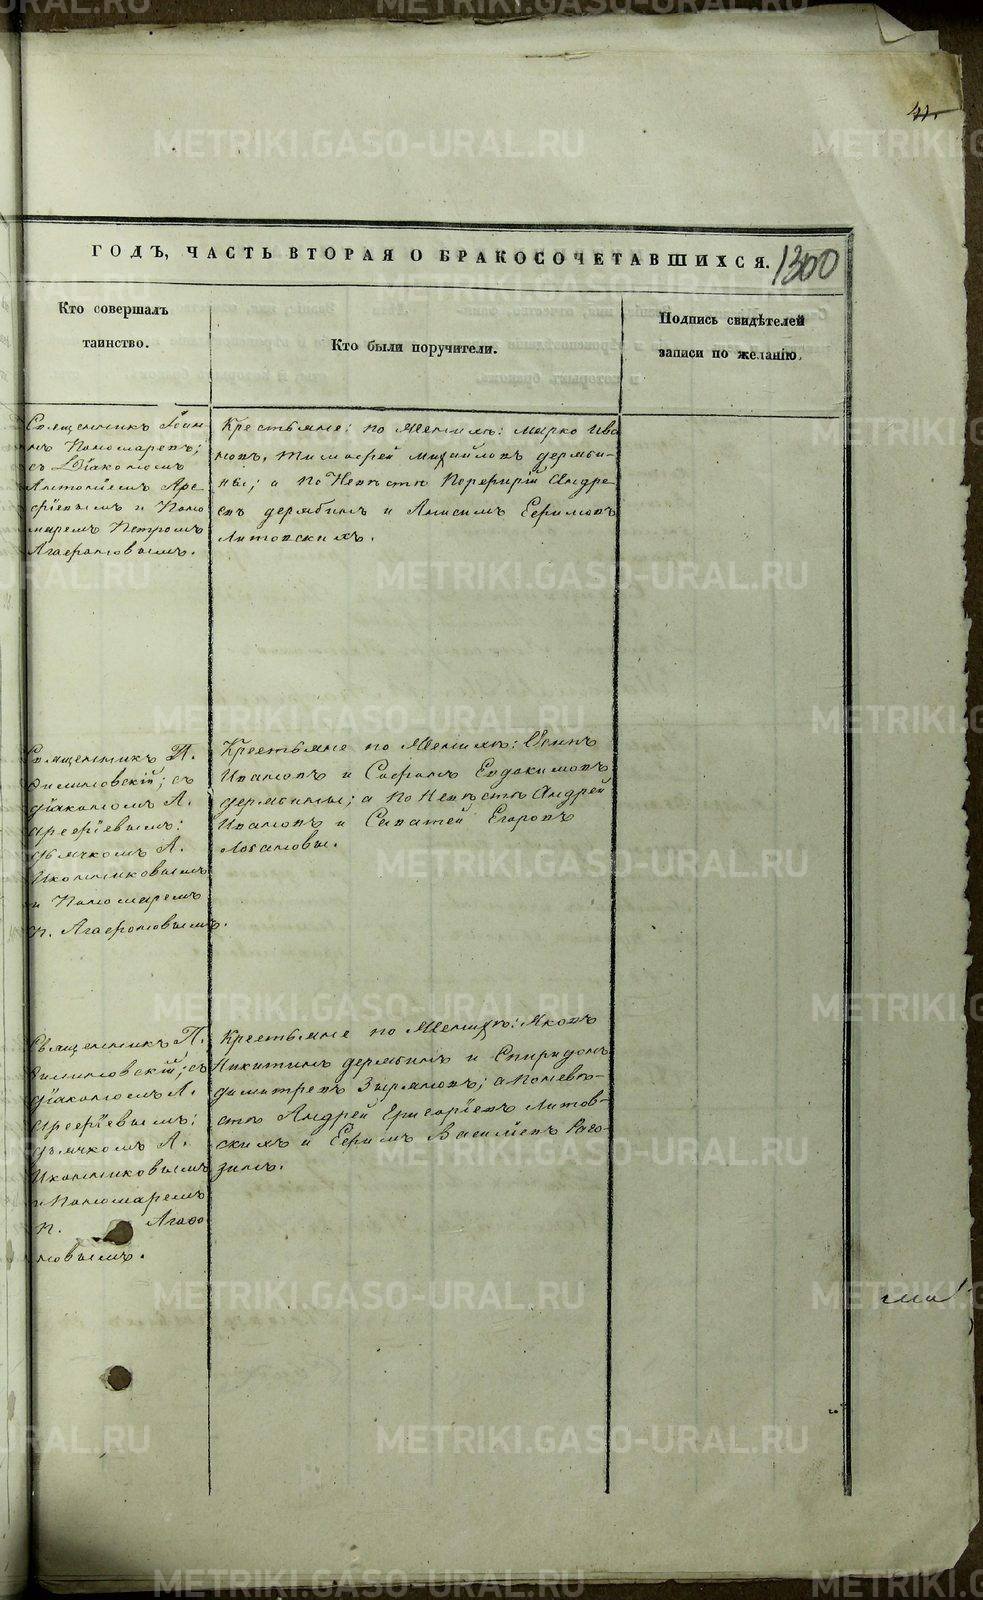 41.
ГОДЪ, ЧАСТЬ ВТОРАЯ О БРАКОСОЧЕТАВШИХСЯ.
1300
Кто совершалъ
таинство.
Кто были поручители.
Подпись свидѣтелей
записи по желанію.
Священникъ Іоан
нъ Пономаревъ;
съ Діакономъ
Антоніемъ Аре
фіевымъ и Поно
маремъ Петромъ
Агафоновымъ.
Крестьяне: по Женихѣ: Марко Ива
новъ, Тимофей Михайловъ Дерябы-
ны; а по Невѣстѣ Порфирій Андре
евъ Дерябинъ и Анисимъ Ефимовъ
Литовскихъ.
Священникъ П.
Филиповскій; съ
діакономъ А.
Арефіевымъ:
дьячкомъ А.
Иконниковымъ
и Пономаремъ
П. Агафоновымъ.
Крестьяне по Женихѣ:
Ивановъ и Софонъ Евдокимовъ
Дерябины; а по Невѣстѣ Андрей
Ивановъ и Савватей Егоровъ
Лобановы.
Священникъ П.
Филиповскій; съ
діакономъ А.
Арефіевымъ:
дьячкомъ А.
Иконниковымъ
и Пономаремъ
П. Агафо
новымъ.
Крестьяне по Женихѣ: Яковъ
Никитинъ Дерябинъ и Спиридонъ
Димитревъ Зыряновъ; а по невѣ-
стѣ Андрей Григоріевъ Литов-
скихъ и Ефимъ Василіевъ Рого-
зинъ.
METRIKI.GASO-URAL.RU